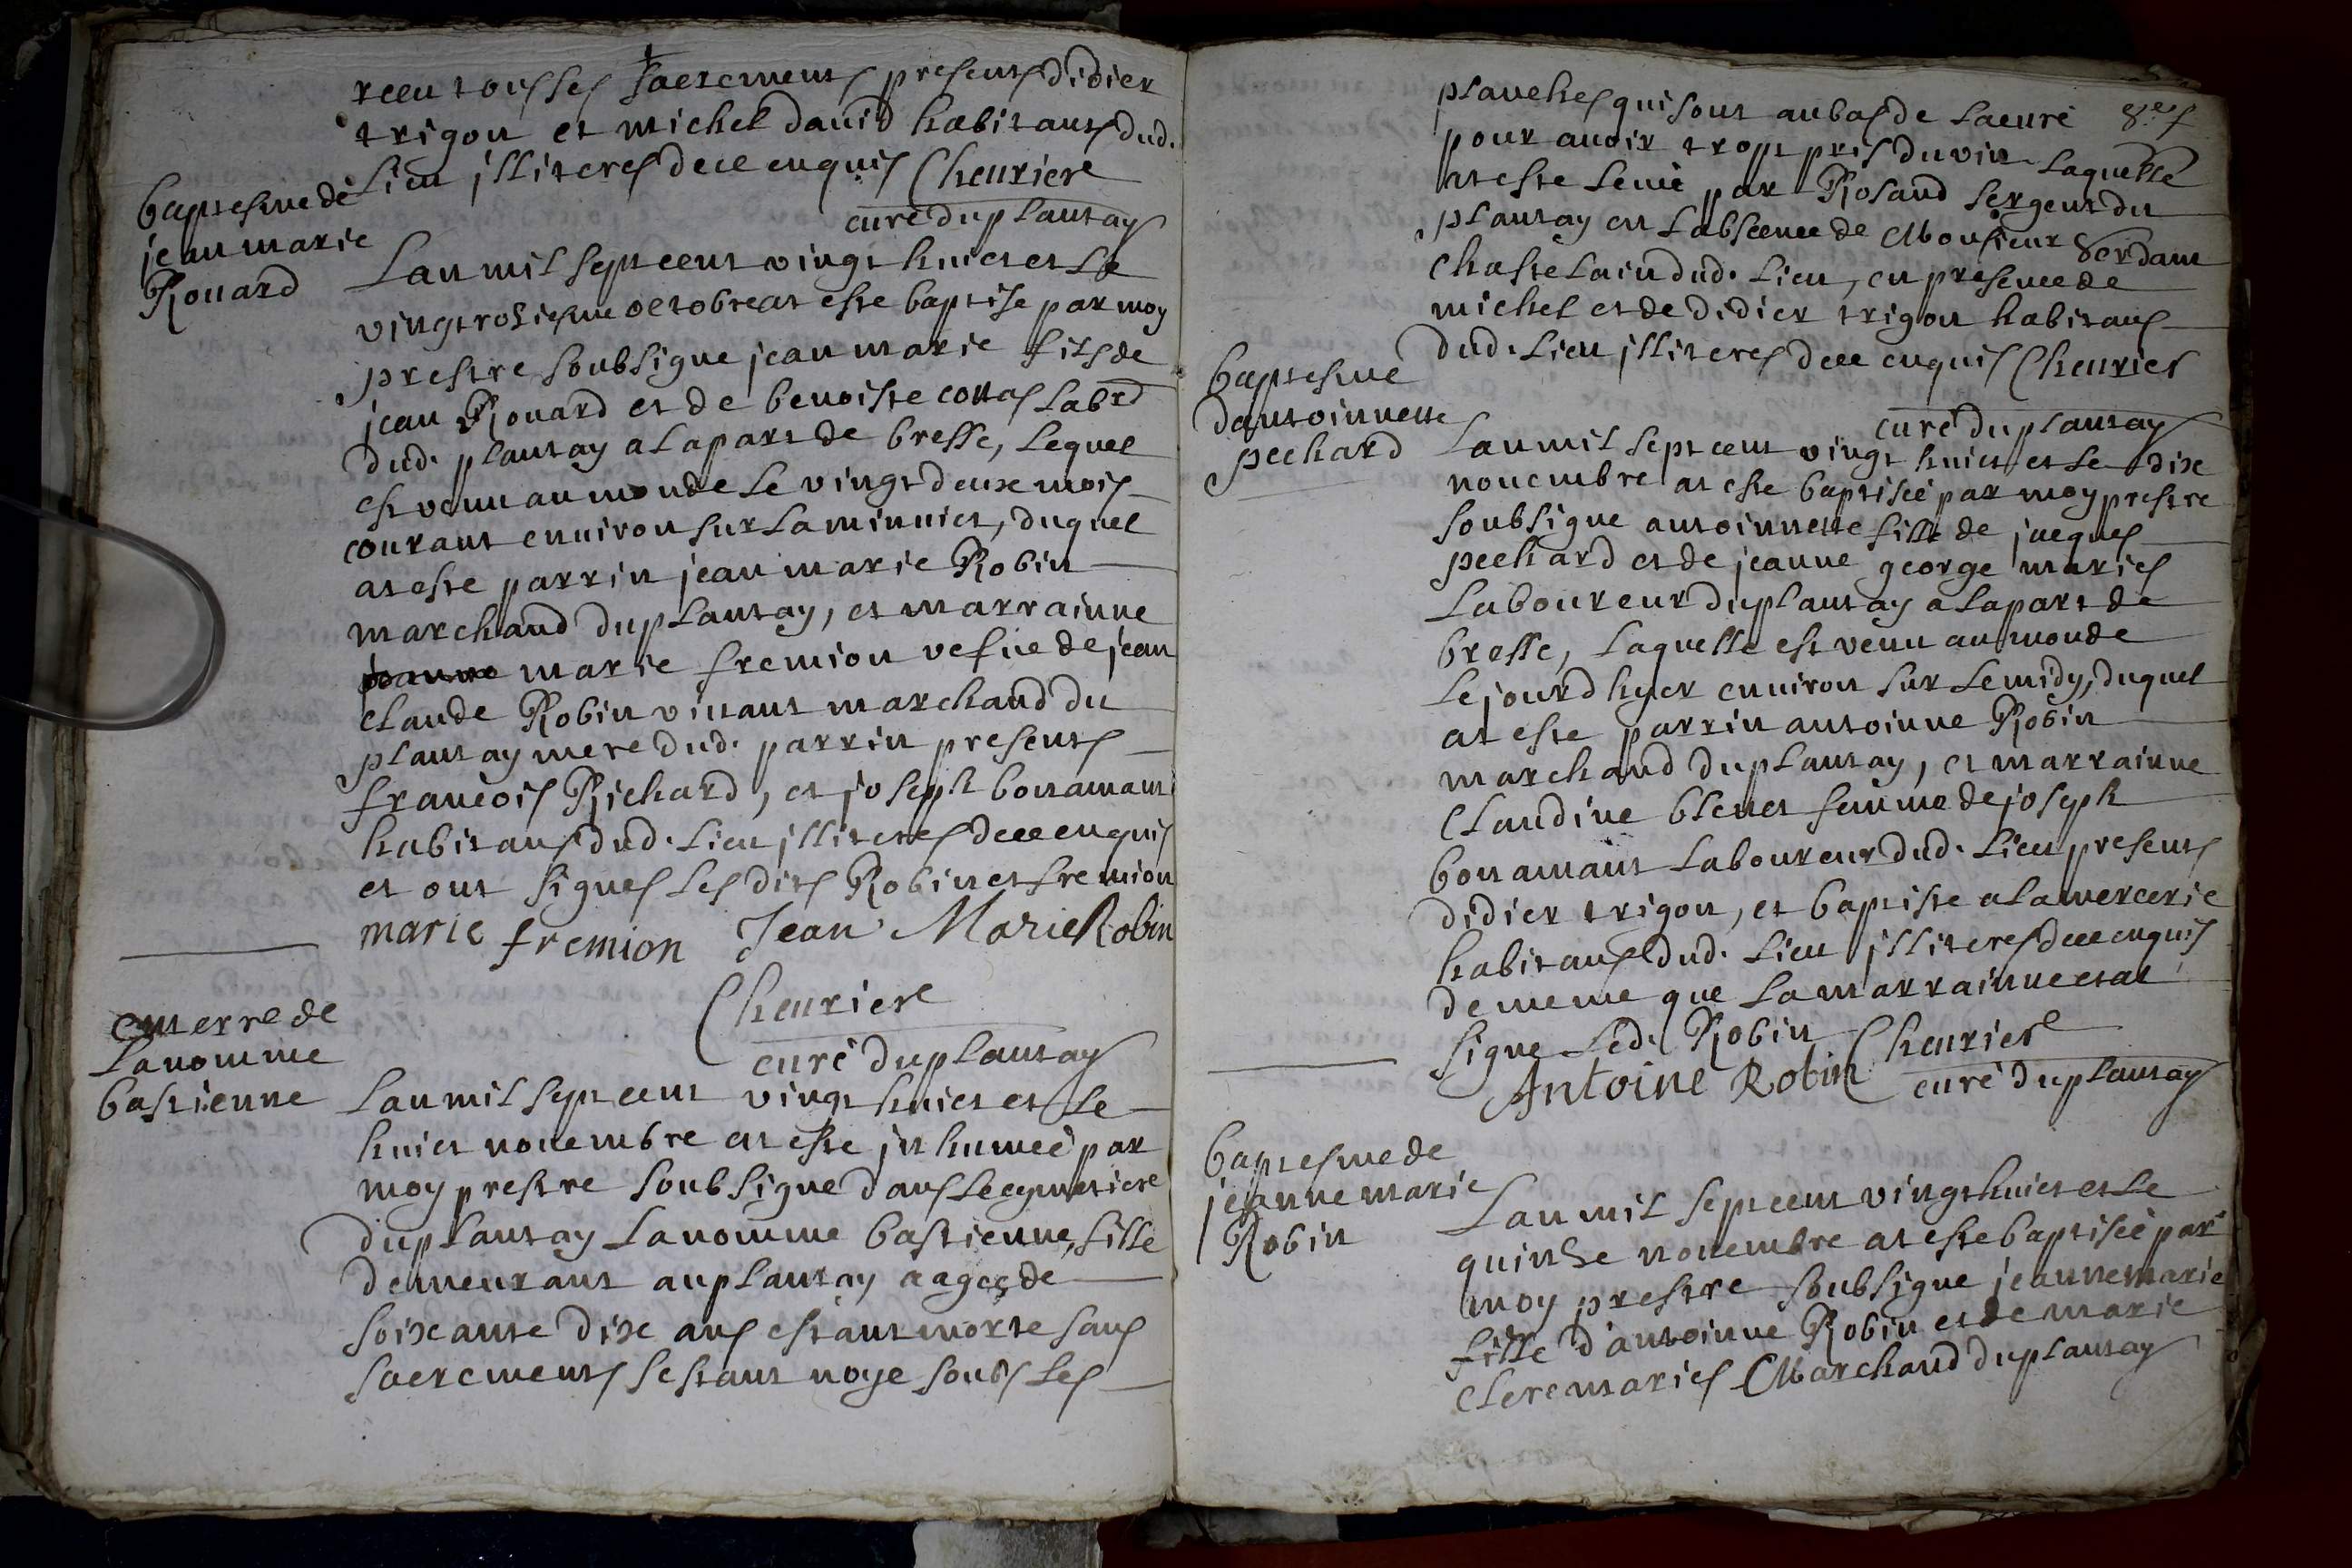 receu tous ses sacremens presents didier
trigon et michel david habitans dud.
lieu illiteres dece enquis Cheurier
curé du plantay
baptesme de
jean marie
Rouard
Lan mil sept cent vingt huict et le
vingtroisiesme octobre at este baptise par moy
prestre soubsigne jean marie fils de
jean Rouard et de benoiste collas labrd
dud. plantay a la part de bresse, lequel
est venu au monde le vingt deuxe mois
courant environ sur la minuict, duquel
at este parrin jean marie Robin
marchand du plantay, et marrainne
marie fremion vefue de jean
claude Robin vivant marchand du
plantay mere dud. parrin presents
francois Richard, et joseph bonamant
habitans dud. lieu illiteres dece enquis
et ont signes les dits Robin et fremion
marie fremion Jean Marie Robin
Cheurier
curé du plantay
enterre de
la nomme
bastienne
Lan mil sept cent vingt huict et le
huict novembre at este inhumeé par
moy prestre soubsigne dans le cymetiere
du plantay la nomme bastienne, fille
demeurant au plantay aageé de
soixante dixe ans estant morte sans
sacrements sestant noye soubs les
planches qui sont au bas de la curé
pour avoir tropt pris du vin laquelle
at este levé par Roland sergent du
plantay en labscence de Monsieur
chastelain dud. lieu, en presence de
michel et de didier trigon habitans
dud. lieu illiteres dece enquis Cheurier
curé du plantay
baptesme
dantoinnette
pechard
Lan mil sept cent vingt huict et le dixe
novembre at este baptiseé par moy prestre
soubsigne antoinnette fille de jacques
pechard et de jeanne george maries
laboureur du plantay a la part de
bresse, laquelle est venu au monde
le jourd hyer environ sur le midy, duquel
at este parrin antoinne Robin
marchand du plantay, et marrainne
claudine femme de joseph
bonamant laboureur dud. lieu presents
didier trigon, et baptiste alamercerie
habitans dud. lieu illiteres dece enquis
de meme que la marrainne et at
signe led. Robin Cheurier
Antoine Robin curé du plantay
baptesme de
jeanne marie
Robin
Lan mil sept cent vingt huict et le
quinse novembre at este baptiseé par
moy prestre soubsigne jeanne marie
fille d'antoinne Robin et de marie
clere maries Marchand du plantay